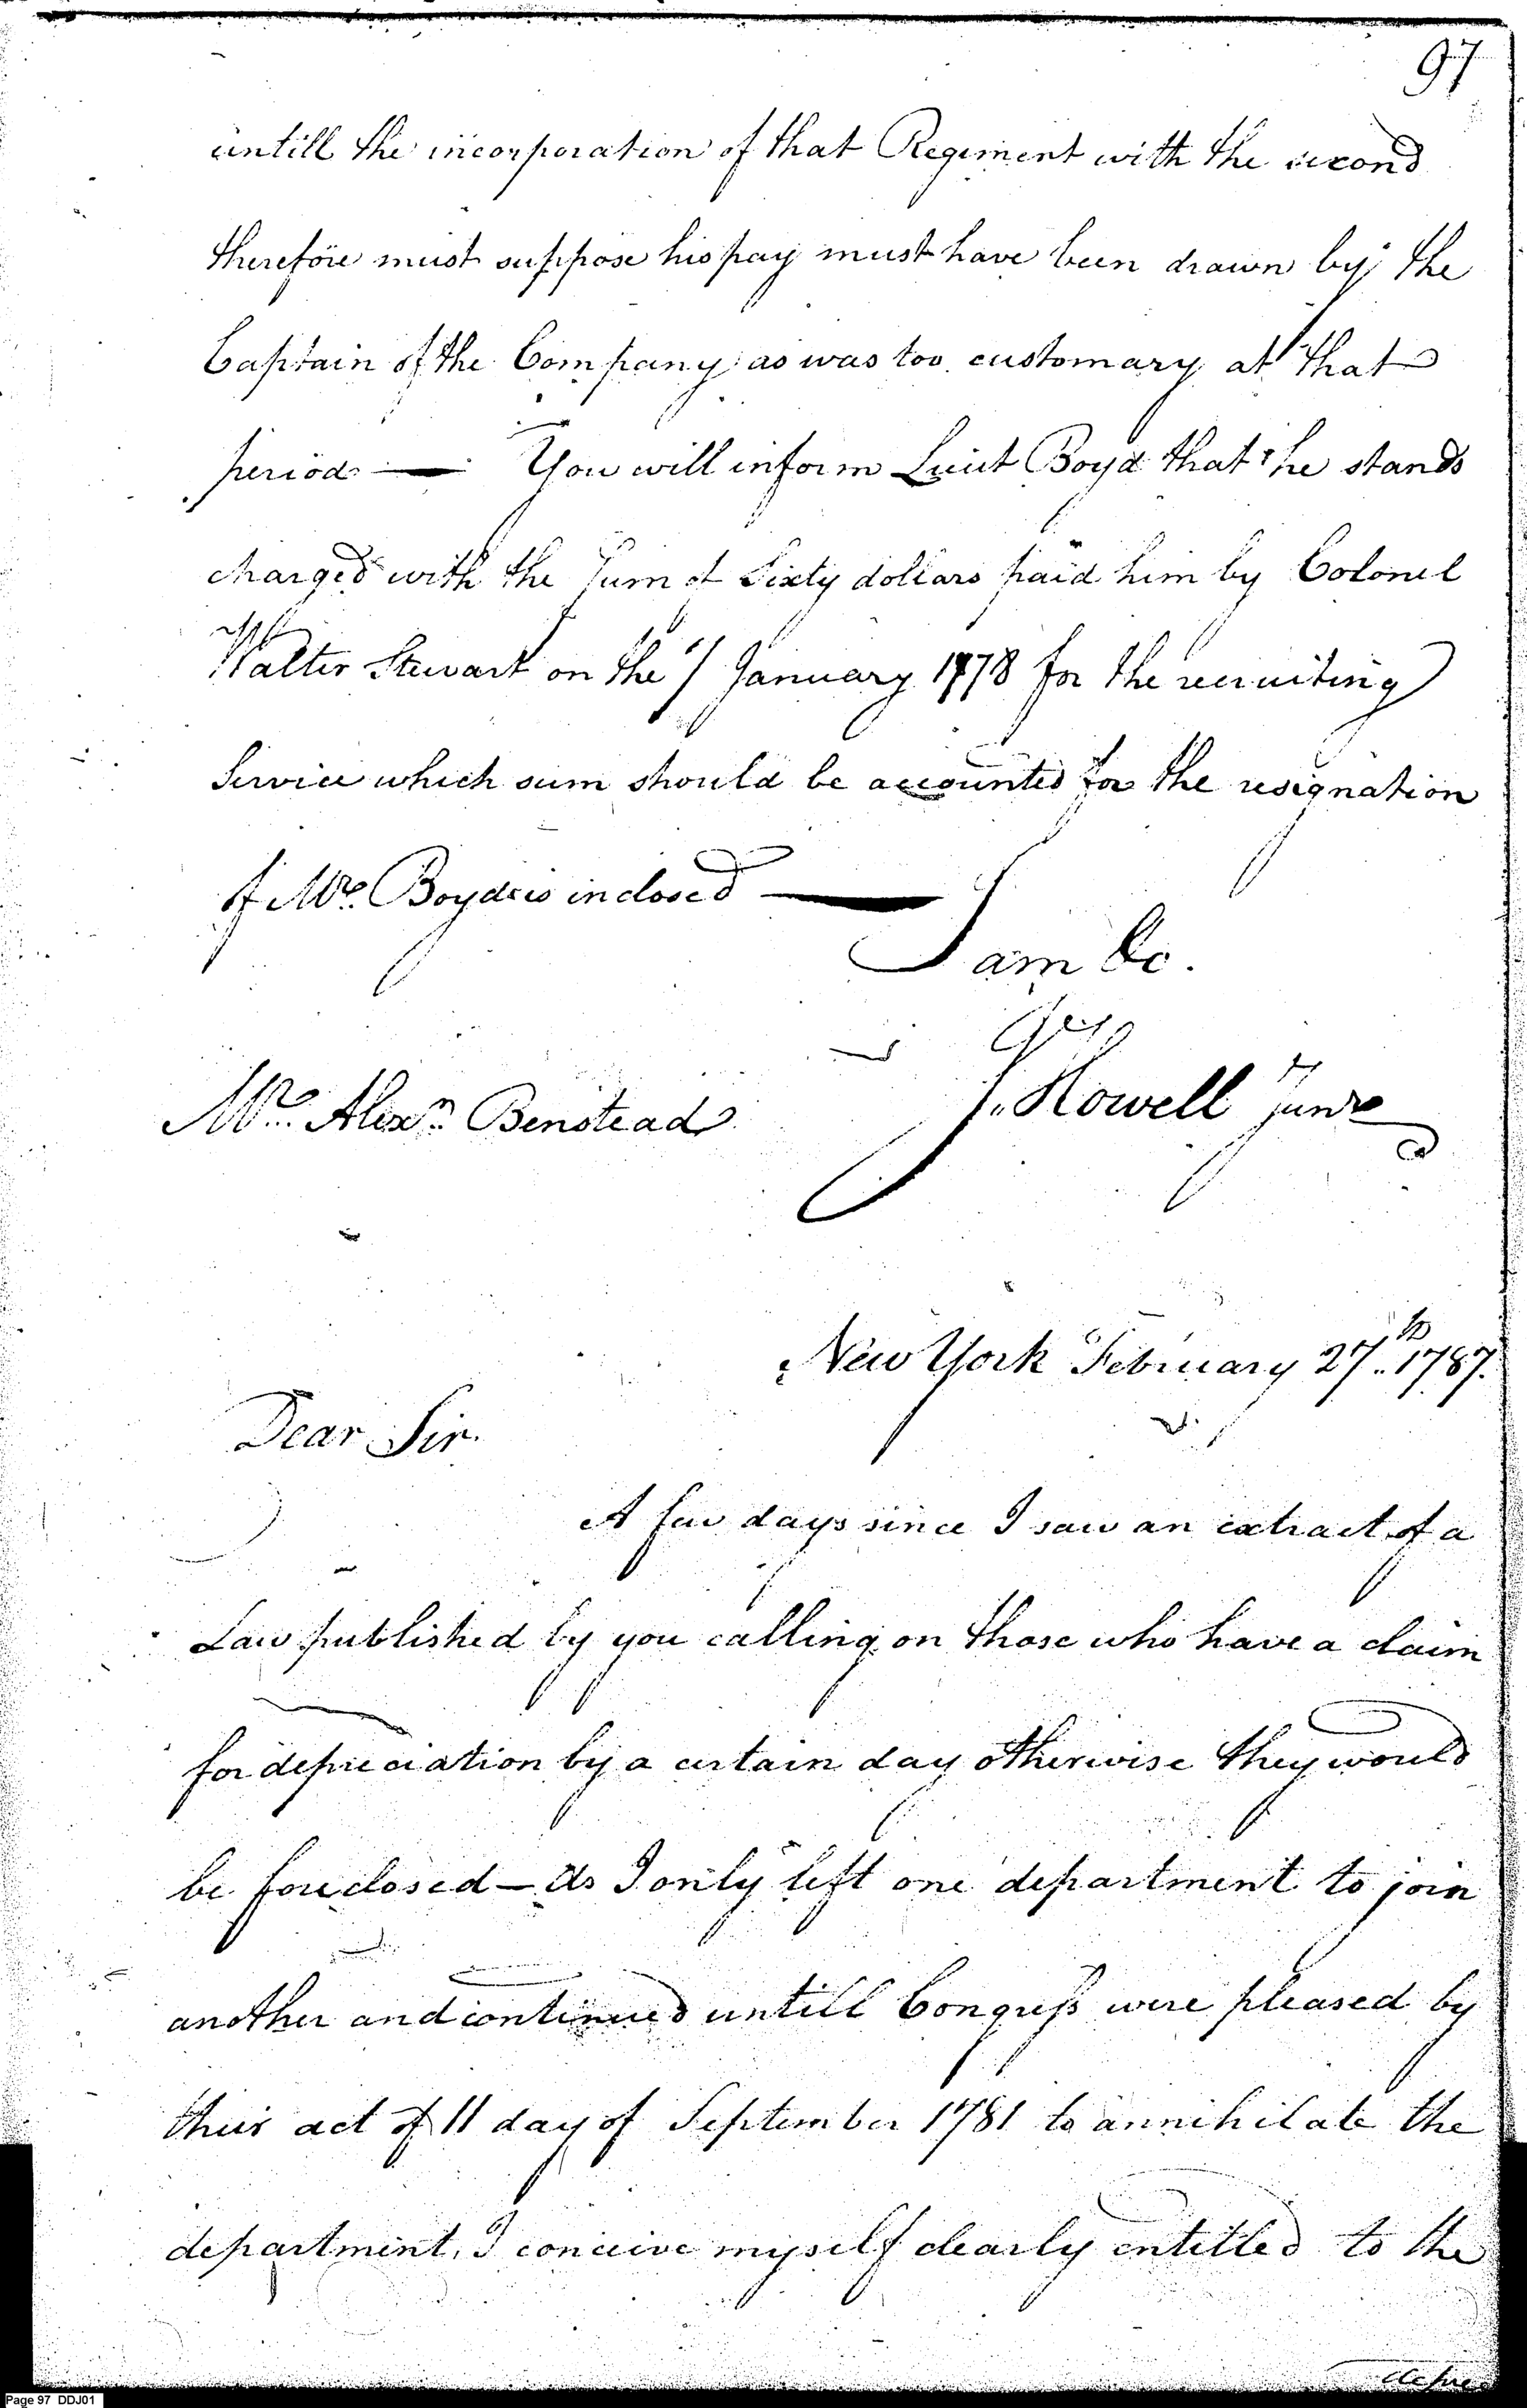 97
untill the incorporation of that Regiment with the second
therefore must suppose his pay must have been drawn by the
Captain of the Company as was too customary at that
period — You will inform Lieut Boyd that he stands
charged with the Sum of Sixty dollars paid him by Colonel
Walter Stewart on the 1 January 1778 for the recruiting
Service which sum should be accounted for the resignation
of Mr. Boyd is inclosed —
I am &c.
J. Howell junr
Mr. Alexr. Benstead
New York February 27th. 1787.
Dear Sir.
A few days since I saw an extract of a
Law published by you calling on those who have a claim
for depreciation by a certain day otherwise they would
be foreclosed — As I only left one department to join
another and continued untill Congress were pleased by
their act of 11 day of September 1781 to annihilate the
department, I conceive myself clearly entitled to the
depre
Page 97 DDJ01